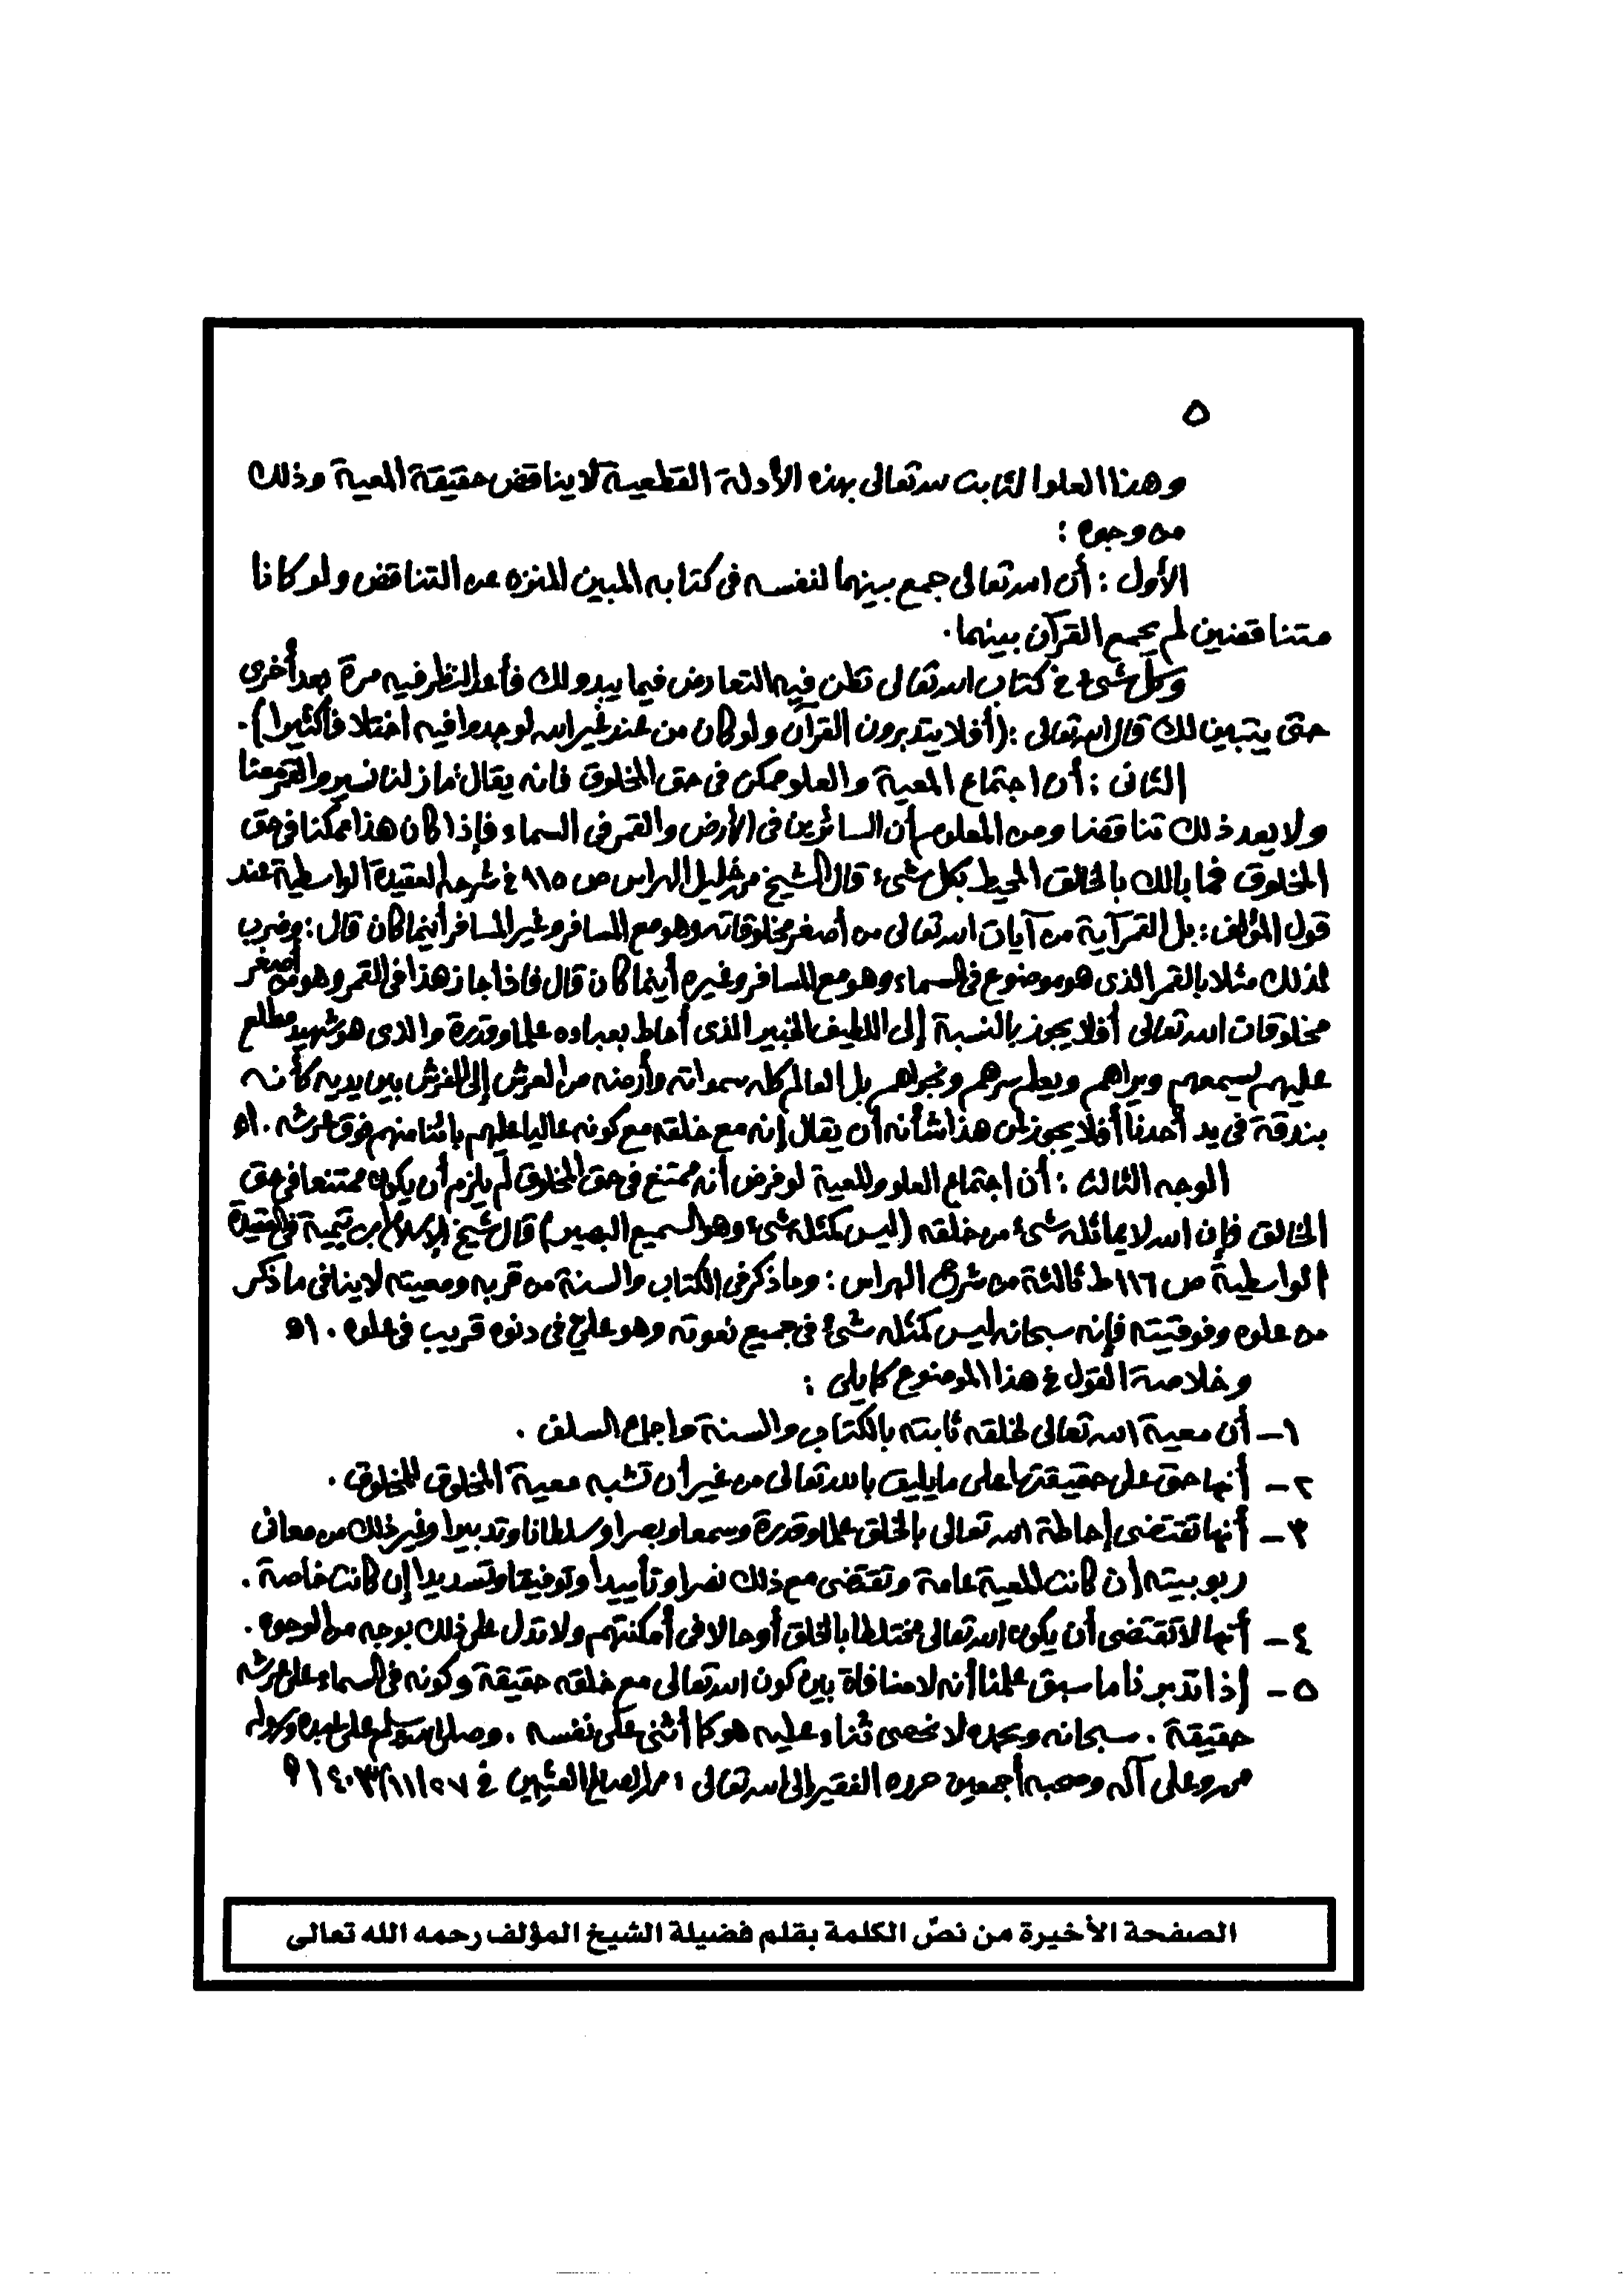 ٥
وهذا العلو الثابت لله تعالى بهذه الأدلة القطعية لا يناقض حقيقة المعية وذلك
من وجوه :
الأول : أن الله تعالى جمع بينهما لنفسه فى كتابه المبين المنزه عن التناقض ولو كانا
متناقضين لم يجمع القرآن بينهما .
وكل شىء فى كتاب الله تعالى تظن فيه التعارض فيما يبدو لك فأعد النظر فيه مرة بعد أخرى
حتى يتبين لك قال الله تعالى : (أفلا يتدبرون القرآن ولو كان من عند غير الله لوجدوا فيه اختلافا كثيرا) .
الثانى : أن اجتماع المعية والعلو ممكن فى حق المخلوق فإنه يقال : ما زلنا نسير والقمر معنا
ولا يعد ذلك تناقضا ومن المعلوم أن السائرين فى الأرض والقمر فى السماء فإذا كان هذا ممكنا فى حق
المخلوق فما بالك بالخالق المحيط بكل شىء قال الشيخ محمد خليل الهراس ص ١١٥ فى شرحه العقيدة الواسطية عند
قول المؤلف : بل القمر آية من آيات الله تعالى من أصغر مخلوقاته وهو مع المسافر وغير المسافر أينما كان قال : وضرب
لذلك مثلا بالقمر الذى هو موضوع فى السماء وهو مع المسافر وغيره أينما كان قال فاذا جاز هذا فى القمر وهو من أصغر
مخلوقات الله تعالى أفلا يجوز بالنسبة إلى اللطيف الخبير الذى أحاط بعباده علما وقدرة والذى هو شهيد مطلع
عليهم يسمعهم ويراهم ويعلم سرهم ونجواهم بل العالم كله سمواته وأرضه من العرش إلى الفرش بين يديه كأنه
بندقة فى يد أحدنا أفلا يجوز لمن هذا شأنه أن يقال إنه مع خلقه مع كونه عاليا عليهم بائنا منهم فوق عرشه . اه
الوجه الثالث : أن اجتماع العلو والمعية لو فرض أنه ممتنع فى حق المخلوق لم يلزم أن يكون ممتنعا فى حق
الخالق فإن الله لا يماثله شىء من خلقه (ليس كمثله شىء وهو السميع البصير) قال شيخ الإسلام ابن تيمية فى العقيدة
الواسطية ص ١١٦ ط ثالثة من شرح الهراس : وما ذكر فى الكتاب والسنة من قربه ومعيته لا ينافى ما ذكر
من علوه وفوقيته فإنه سبحانه ليس كمثله شىء فى جميع نعوته وهو علىّ فى دنوه قريب فى علوه . اه
وخلاصة القول فى هذا الموضوع كما يلى :
١ - أن معية الله تعالى لخلقه ثابتة بالكتاب والسنة وإجماع السلف .
٢ - أنها حق على حقيقتها على ما يليق بالله تعالى من غير أن تشبه معية المخلوق للمخلوق .
٣ - أنها تقتضى إحاطة الله تعالى بالخلق علما وقدرة وسمعا وبصرا وسلطانا وتدبيرا وغير ذلك من معانى
ربوبيته إن كانت المعية عامة وتقتضى مع ذلك نصرا وتأييدا وتوفيقا وتسديدا إن كانت خاصة .
٤ - أنها لا تقتضى أن يكون الله تعالى مختلطا بالخلق أو حالا فى أمكنتهم ولا تدل على ذلك بوجه من الوجوه .
٥ - إذا تدبرنا ما سبق علمنا أنه لا منافاة بين كون الله تعالى مع خلقه حقيقة وكونه فى السماء على عرشه
حقيقة . سبحانه وبحمده لا نحصى ثناء عليه هو كما أثنى على نفسه . وصلى الله وسلم على عبده ورسوله
محمد وعلى آله وصحبه أجمعين حرره الفقير إلى الله تعالى : محمد الصالح العثيمين فى ٢٧/١١/١٤٠٣ ه
الصفحة الأخيرة من نصّ الكلمة بقلم فضيلة الشيخ المؤلف رحمه الله تعالى